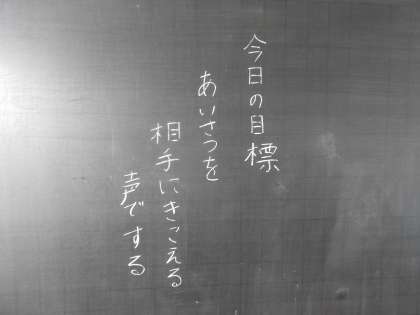 今日の目標
あいさつを
相手にきこえる
声でする